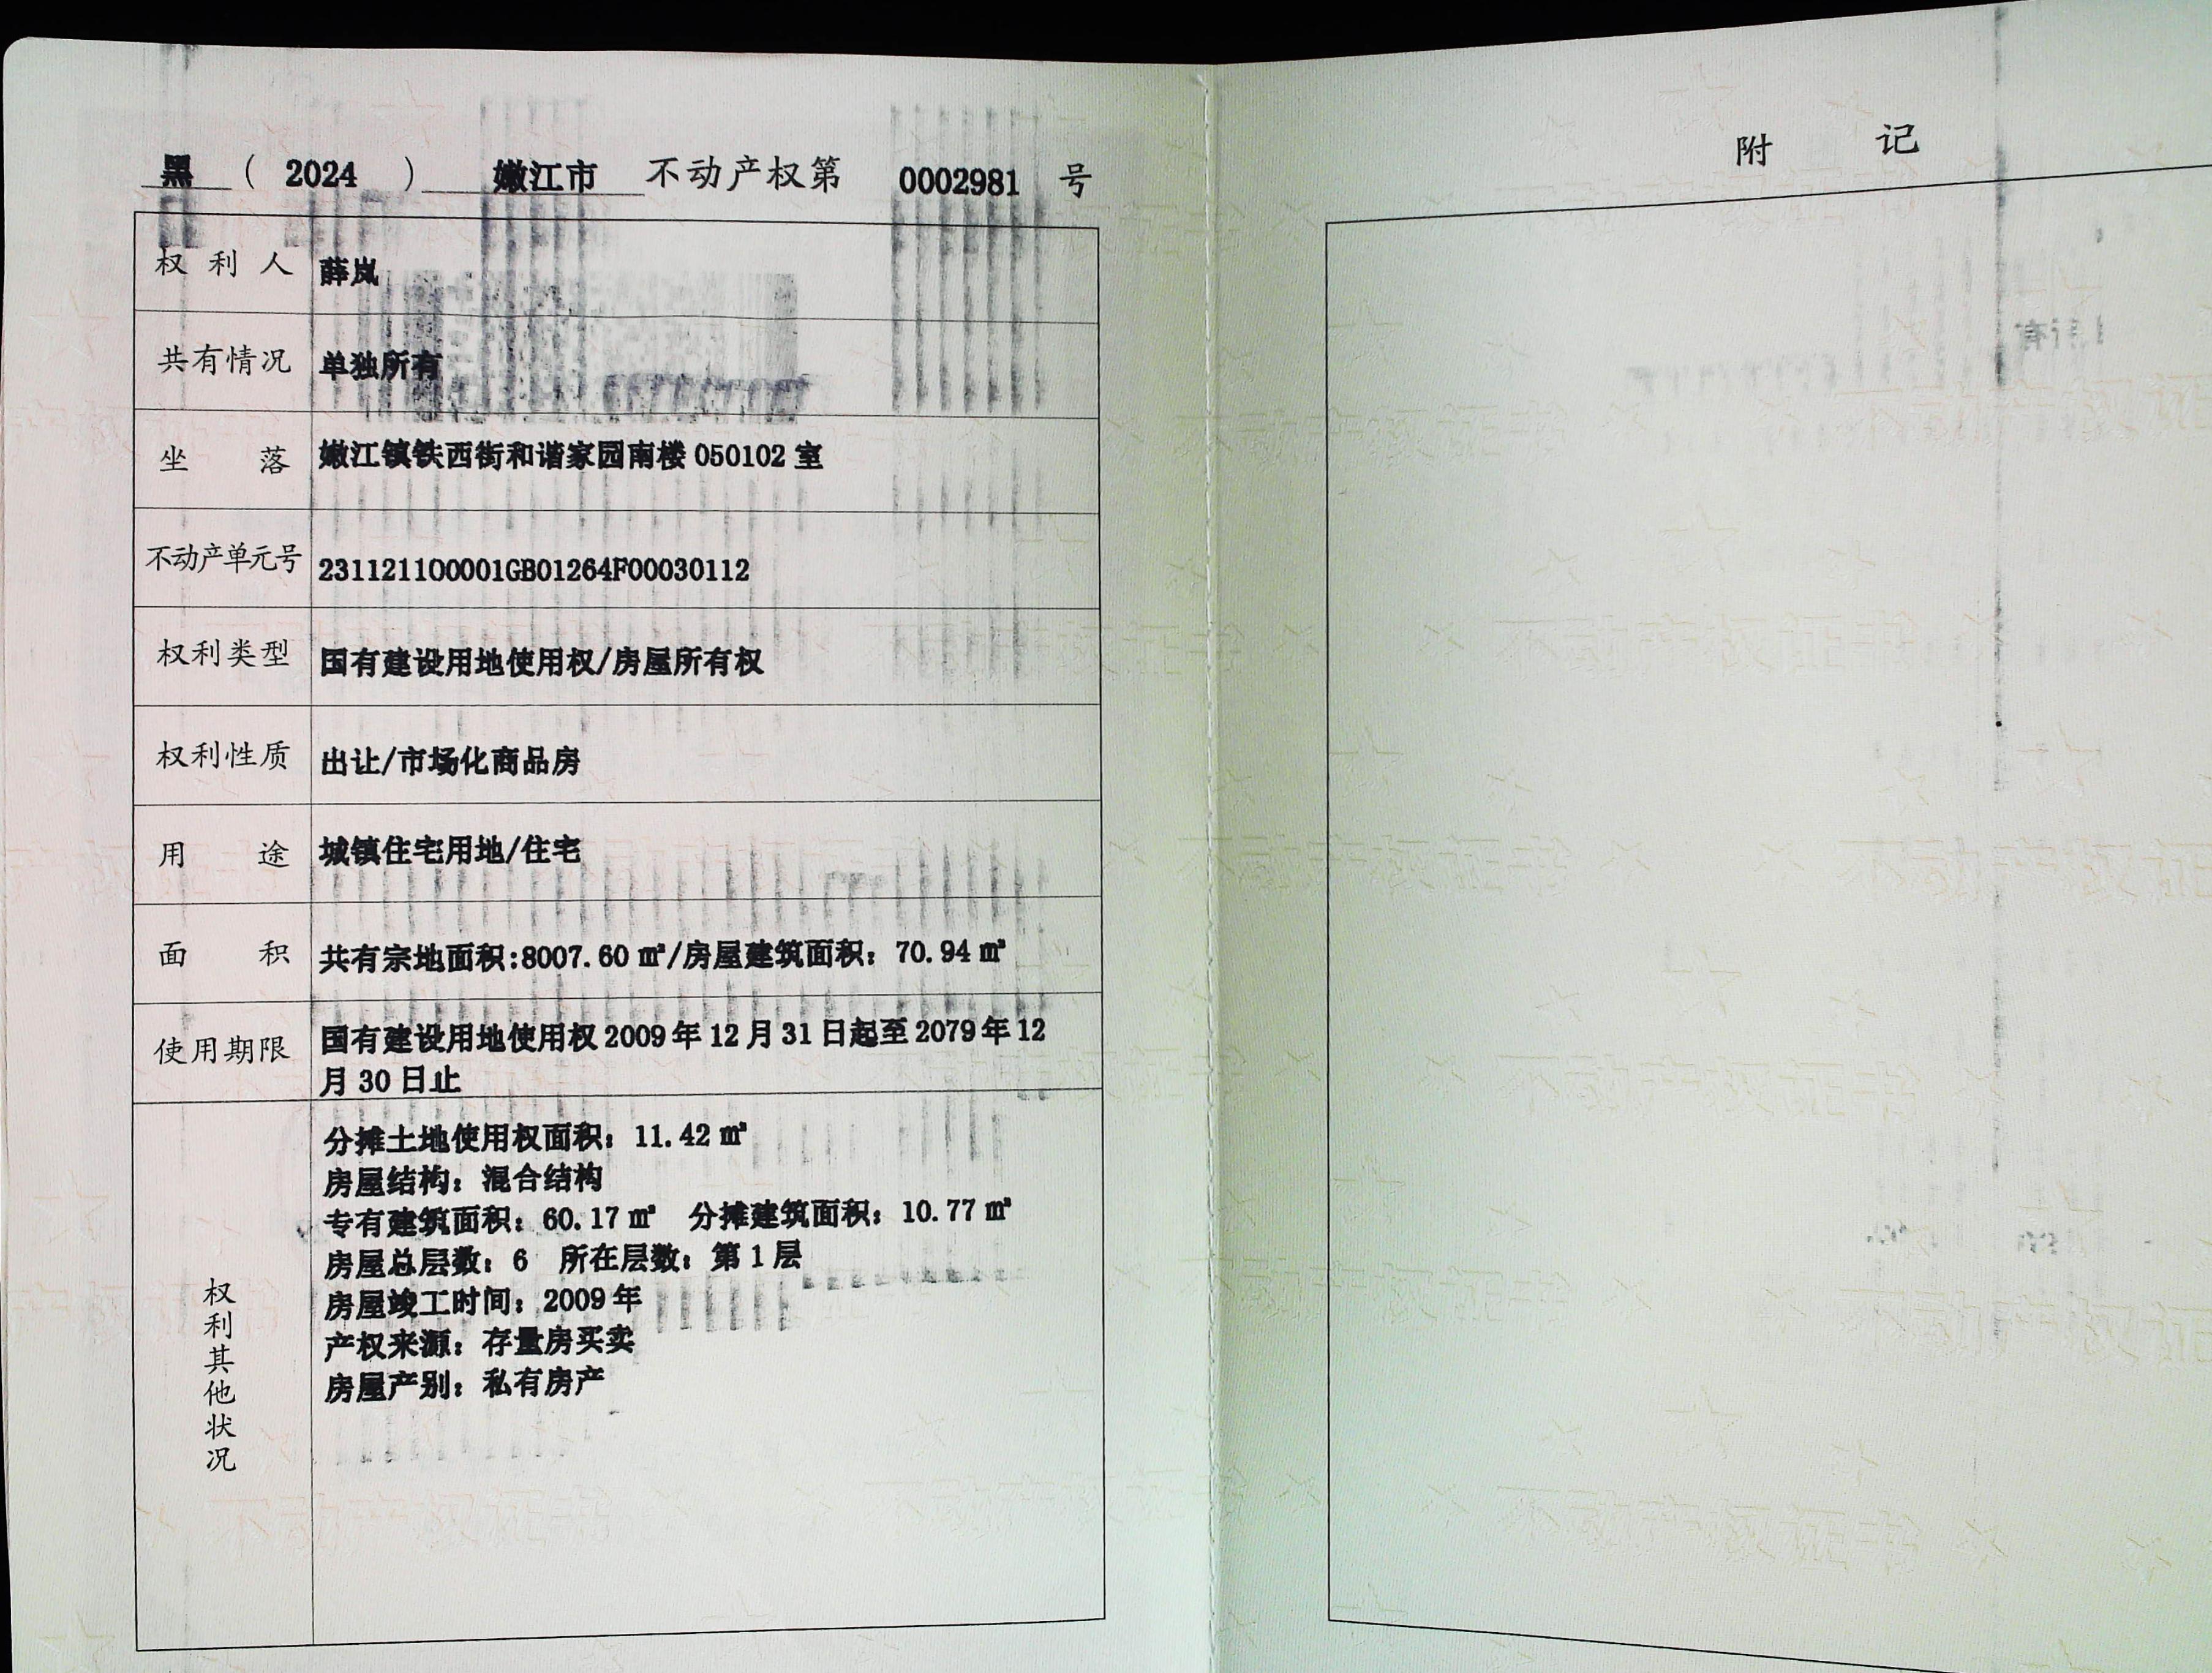 黑（2024）嫩江市 不动产权第 0002981 号
权利人 薛岚
共有情况 单独所有
坐落 嫩江镇铁西街和谐家园南楼 050102 室
不动产单元号 231121100001GB01264F00030112
权利类型 国有建设用地使用权/房屋所有权
权利性质 出让/市场化商品房
用途 城镇住宅用地/住宅
面积 共有宗地面积:8007.60 ㎡/房屋建筑面积：70.94 ㎡
使用期限 国有建设用地使用权 2009 年 12 月 31 日起至 2079 年 12
月 30 日止
权利其他状况
分摊土地使用权面积：11.42 ㎡
房屋结构：混合结构
专有建筑面积：60.17 ㎡ 分摊建筑面积：10.77 ㎡
房屋总层数：6 所在层数：第 1 层
房屋竣工时间：2009 年
产权来源：存量房买卖
房屋产别：私有房产
附记